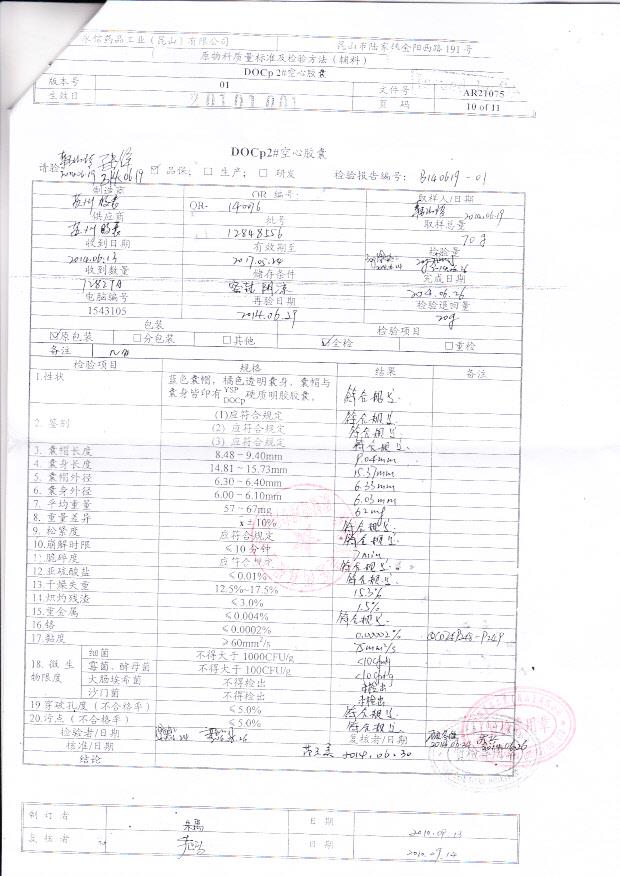 永信药品工业（昆山）有限公司 昆山市陆家镇金阳西路 191 号
原物料质量标准及检验方法（辅料）
DOCp 2#空心胶囊
版本号 01 文件号 AR21075
生效日 页 码 10 of 11
DOCp2#空心胶囊
请验 2014.06.19 2014.06.19 ☑ 品保；□ 生产；□ 研发 检验报告编号： B140619-01
制造商 QR 编号 取样人/日期
苏州胶囊 QR- 14076 2014.06.19
供应商 批号 取样总量
苏州胶囊 12848556 70g
收到日期 有效期至 检验量
2014.06.13 2017.05.24
收到数量 储存条件 完成日期
密封 阴凉 2014.06.26
电脑编号 再验日期 检验退回量
1543105 2014.06.29 20g
包装 检验项目
☑原包装 □分包装 □其他 ☑全检 □重检
备注 N/A
检验项目 规格 结果 备注
1.性状 蓝色囊帽，橘色透明囊身，囊帽与
囊身皆印有 YSP DOCp 硬质明胶胶囊。 符合规定
2. 鉴别 (1)应符合规定 符合规定
(2) 应符合规定 符合规定
(3) 应符合规定 符合规定
3. 囊帽长度 8.48～9.40mm 9.04mm
4. 囊身长度 14.81～15.73mm 15.37mm
5. 囊帽外径 6.30～6.40mm 6.33mm
6. 囊身外径 6.00～6.10mm 6.03mm
7. 平均重量 57～67mg 62mg
8. 重量差异 x±10% 符合规定
9. 松紧度 应符合规定 符合规定
10.崩解时限 ≤10 分钟 7min
11. 脆碎度 应符合规定 符合规定
12 亚硫酸盐 ≤0.01% 符合规定
13.干燥失重 12.5%~17.5% 15.3%
14.炽灼残渣 ≤3.0% 1.5%
15.重金属 ≤0.004% 符合规定
16.铬 ≤0.0002% 0.00002%
17.黏度 ≥60mm²/s 75mm²/s
18. 微生物限度 细菌 不得大于 1000CFU/g <10cfu/g
霉菌、酵母菌 不得大于 100CFU/g <10cfu/g
大肠埃希菌 不得检出 未检出
沙门菌 不得检出 未检出
19 穿破孔度（不合格率） ≤5.0% 符合规定
20.污点（不合格率） ≤5.0% 符合规定
检验者/日期 复核者/日期 2014.06.26
核准/日期 2014.06.30
结论
制 订 者 朱禹 日 期 2010.09.13
复 核 者 日 期 2010.09.14